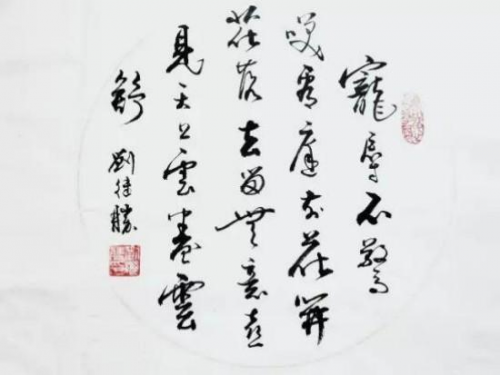 寵辱不驚
咲看庭前花開
花落去留無意喜
見天上雲卷雲
舒
劉勝